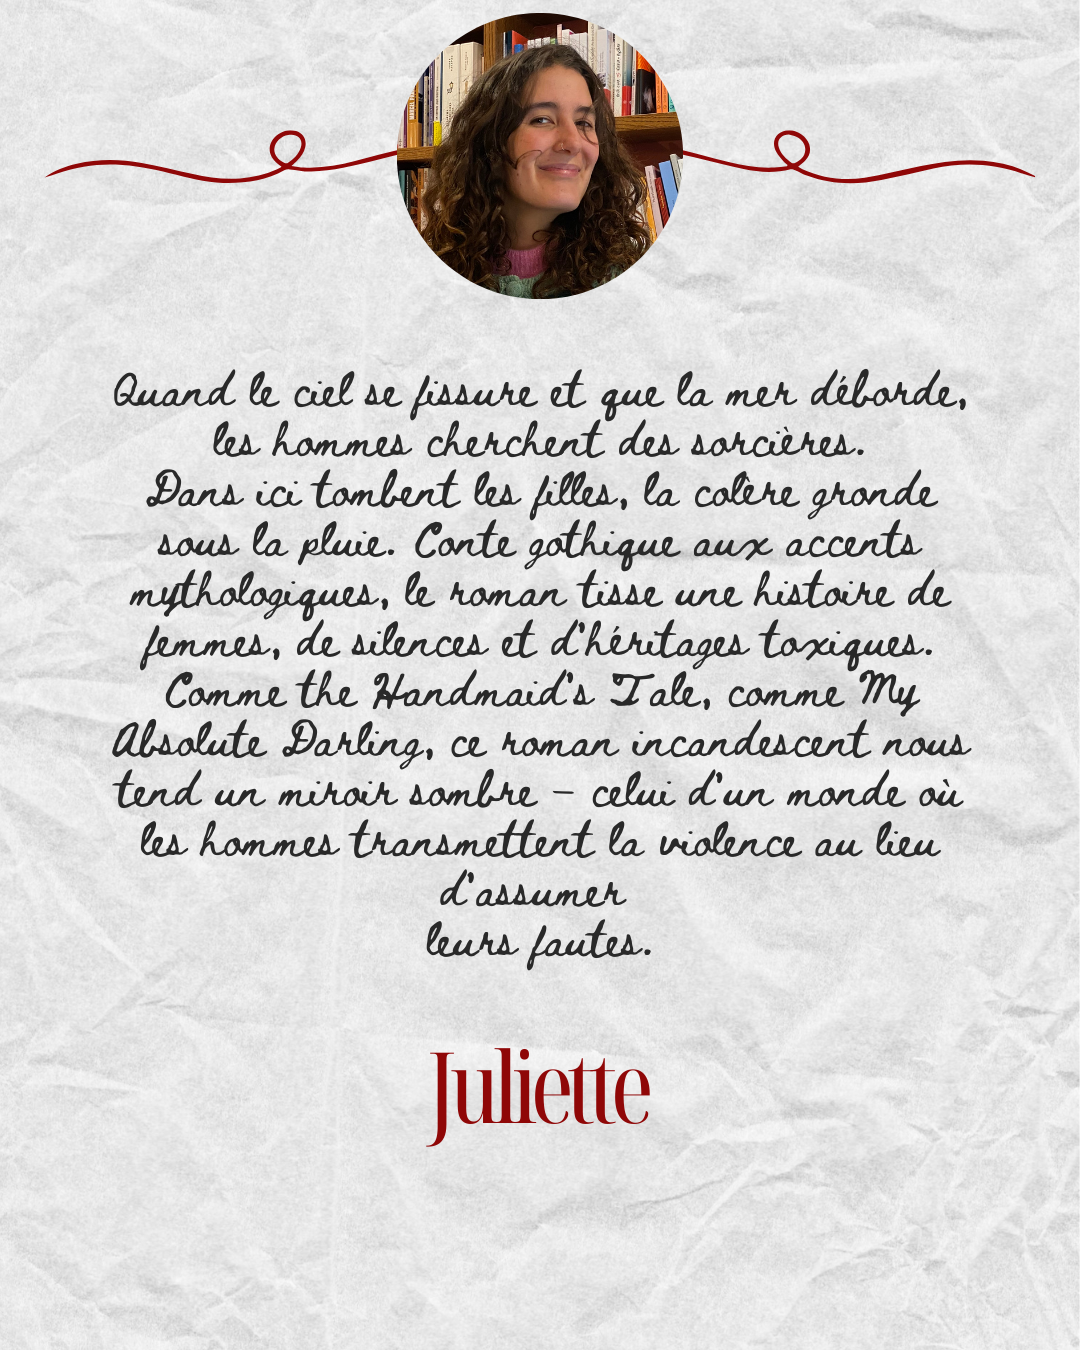 Quand le ciel se fissure et que la mer déborde,
les hommes cherchent des sorcières.
Dans ici tombent les filles, la colère gronde
sous la pluie. Conte gothique aux accents
mythologiques, le roman tisse une histoire de
femmes, de silences et d'héritages toxiques.
Comme the Handmaid's Tale, comme My
Absolute Darling, ce roman incandescent nous
tend un miroir sombre – celui d'un monde où
les hommes transmettent la violence au lieu
d'assumer
leurs fautes.
Juliette